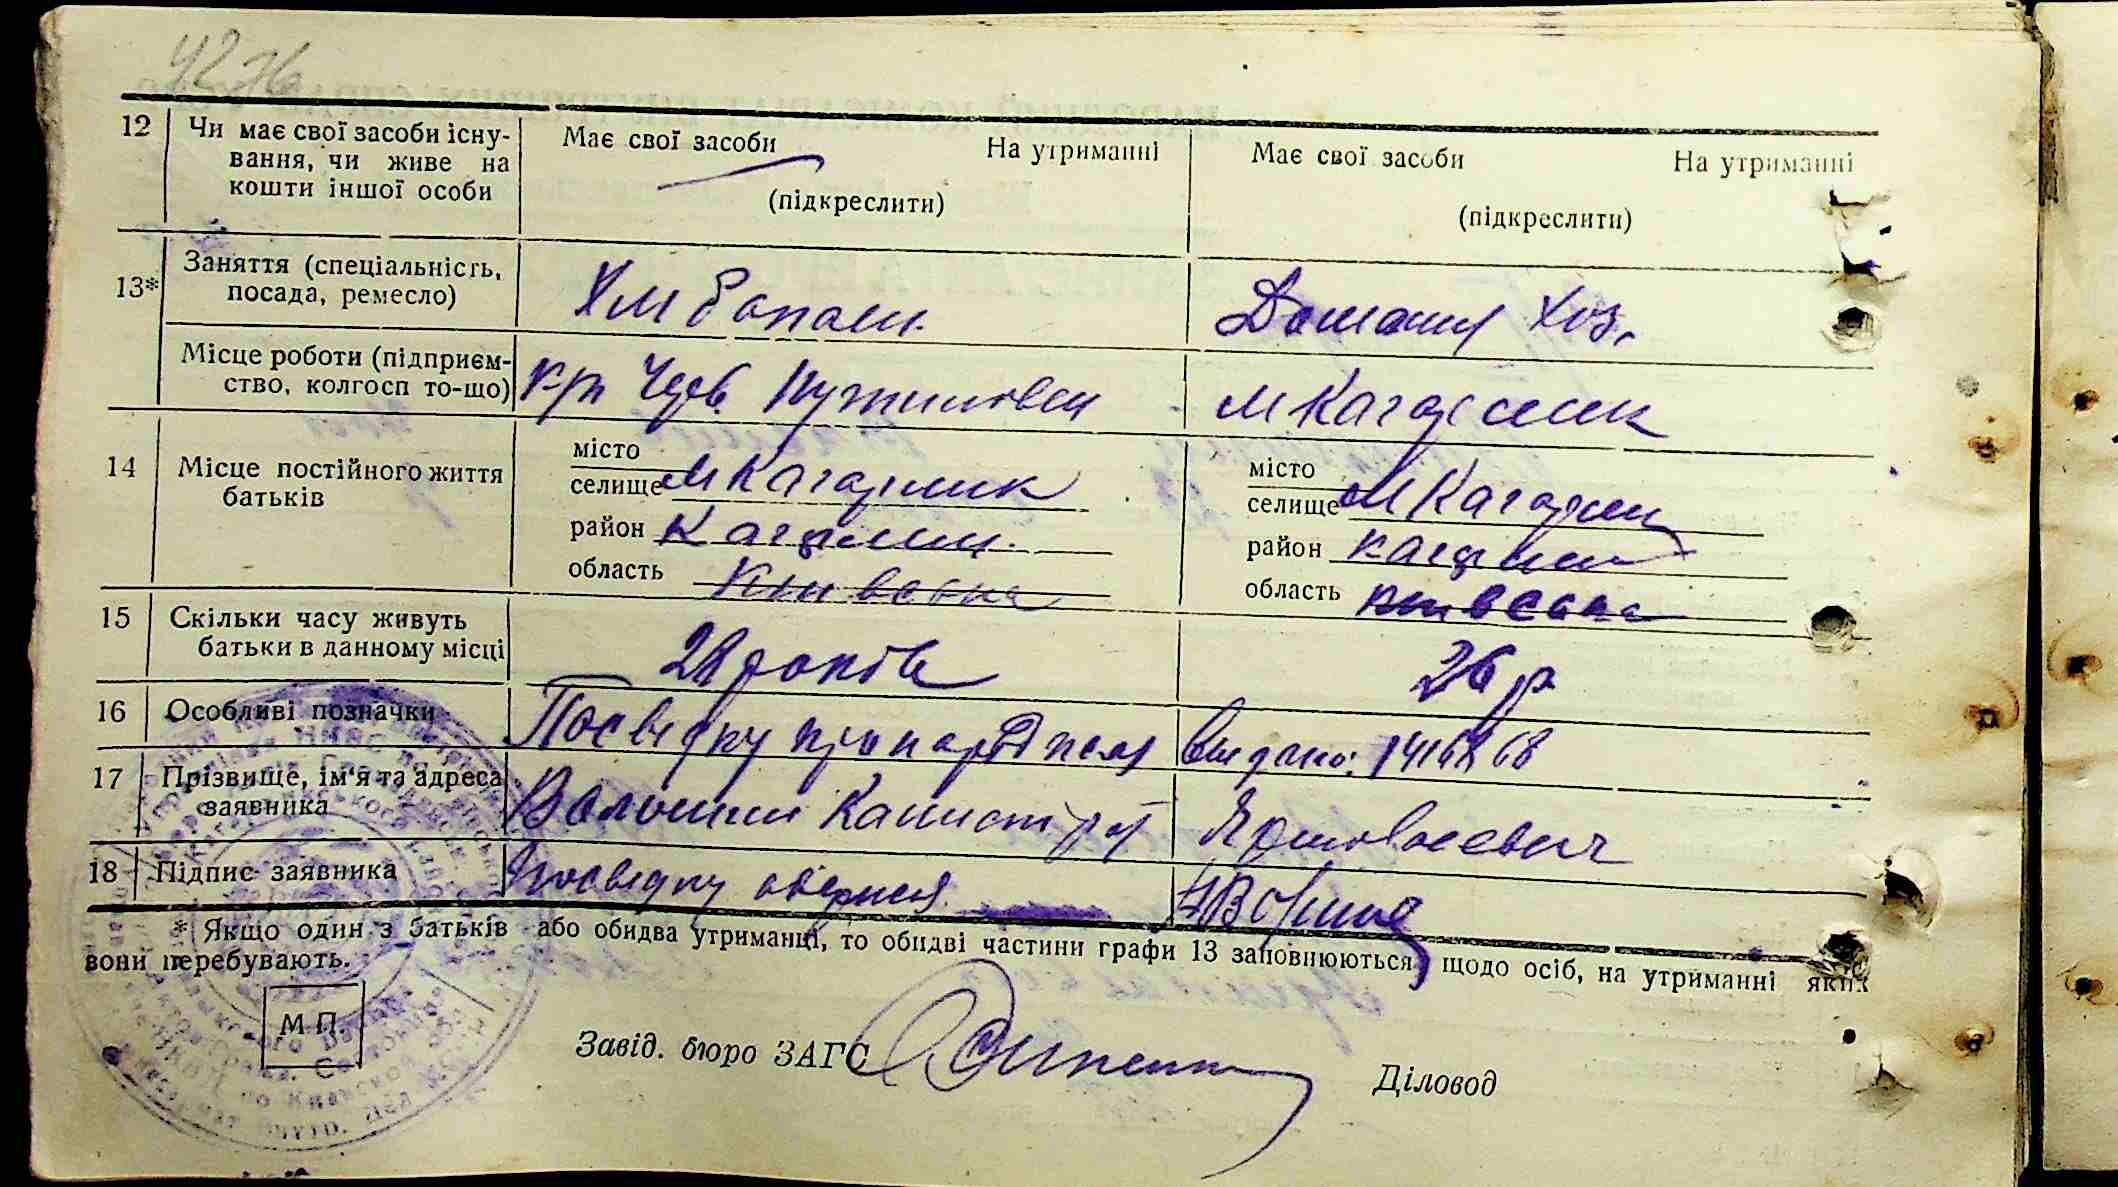 4276
12 Чи має свої засоби існу-
вання, чи живе на
кошти іншої особи
Має свої засоби На утриманні
(підкреслити)
Має свої засоби На утриманні
(підкреслити)
13* Заняття (спеціальність,
посада, ремесло)
Домашня Хоз.
Місце роботи (підприєм-
ство, колгосп то-що)
Черв. Путиловец
м Кагарлик
14 Місце постійного життя
батьків
місто
селище м Кагарлик
район Кагарлик.
область Київська
місто
селище м Кагарлик
район Кагарлик
область Київська
15 Скільки часу живуть
батьки в данному місці
28 років
26 р
16 Особливі позначки
Посвідку про народження видано:
17 Прізвище, ім'я та адреса
заявника
Волошин Калистрат
18 Підпис заявника
Посвідку одержав
* Якщо один з батьків або обидва утриманці, то обидві частини графи 13 заповнюються щодо осіб, на утриманні яких
вони перебувають.
М П.
Завід. бюро ЗАГС
Діловод